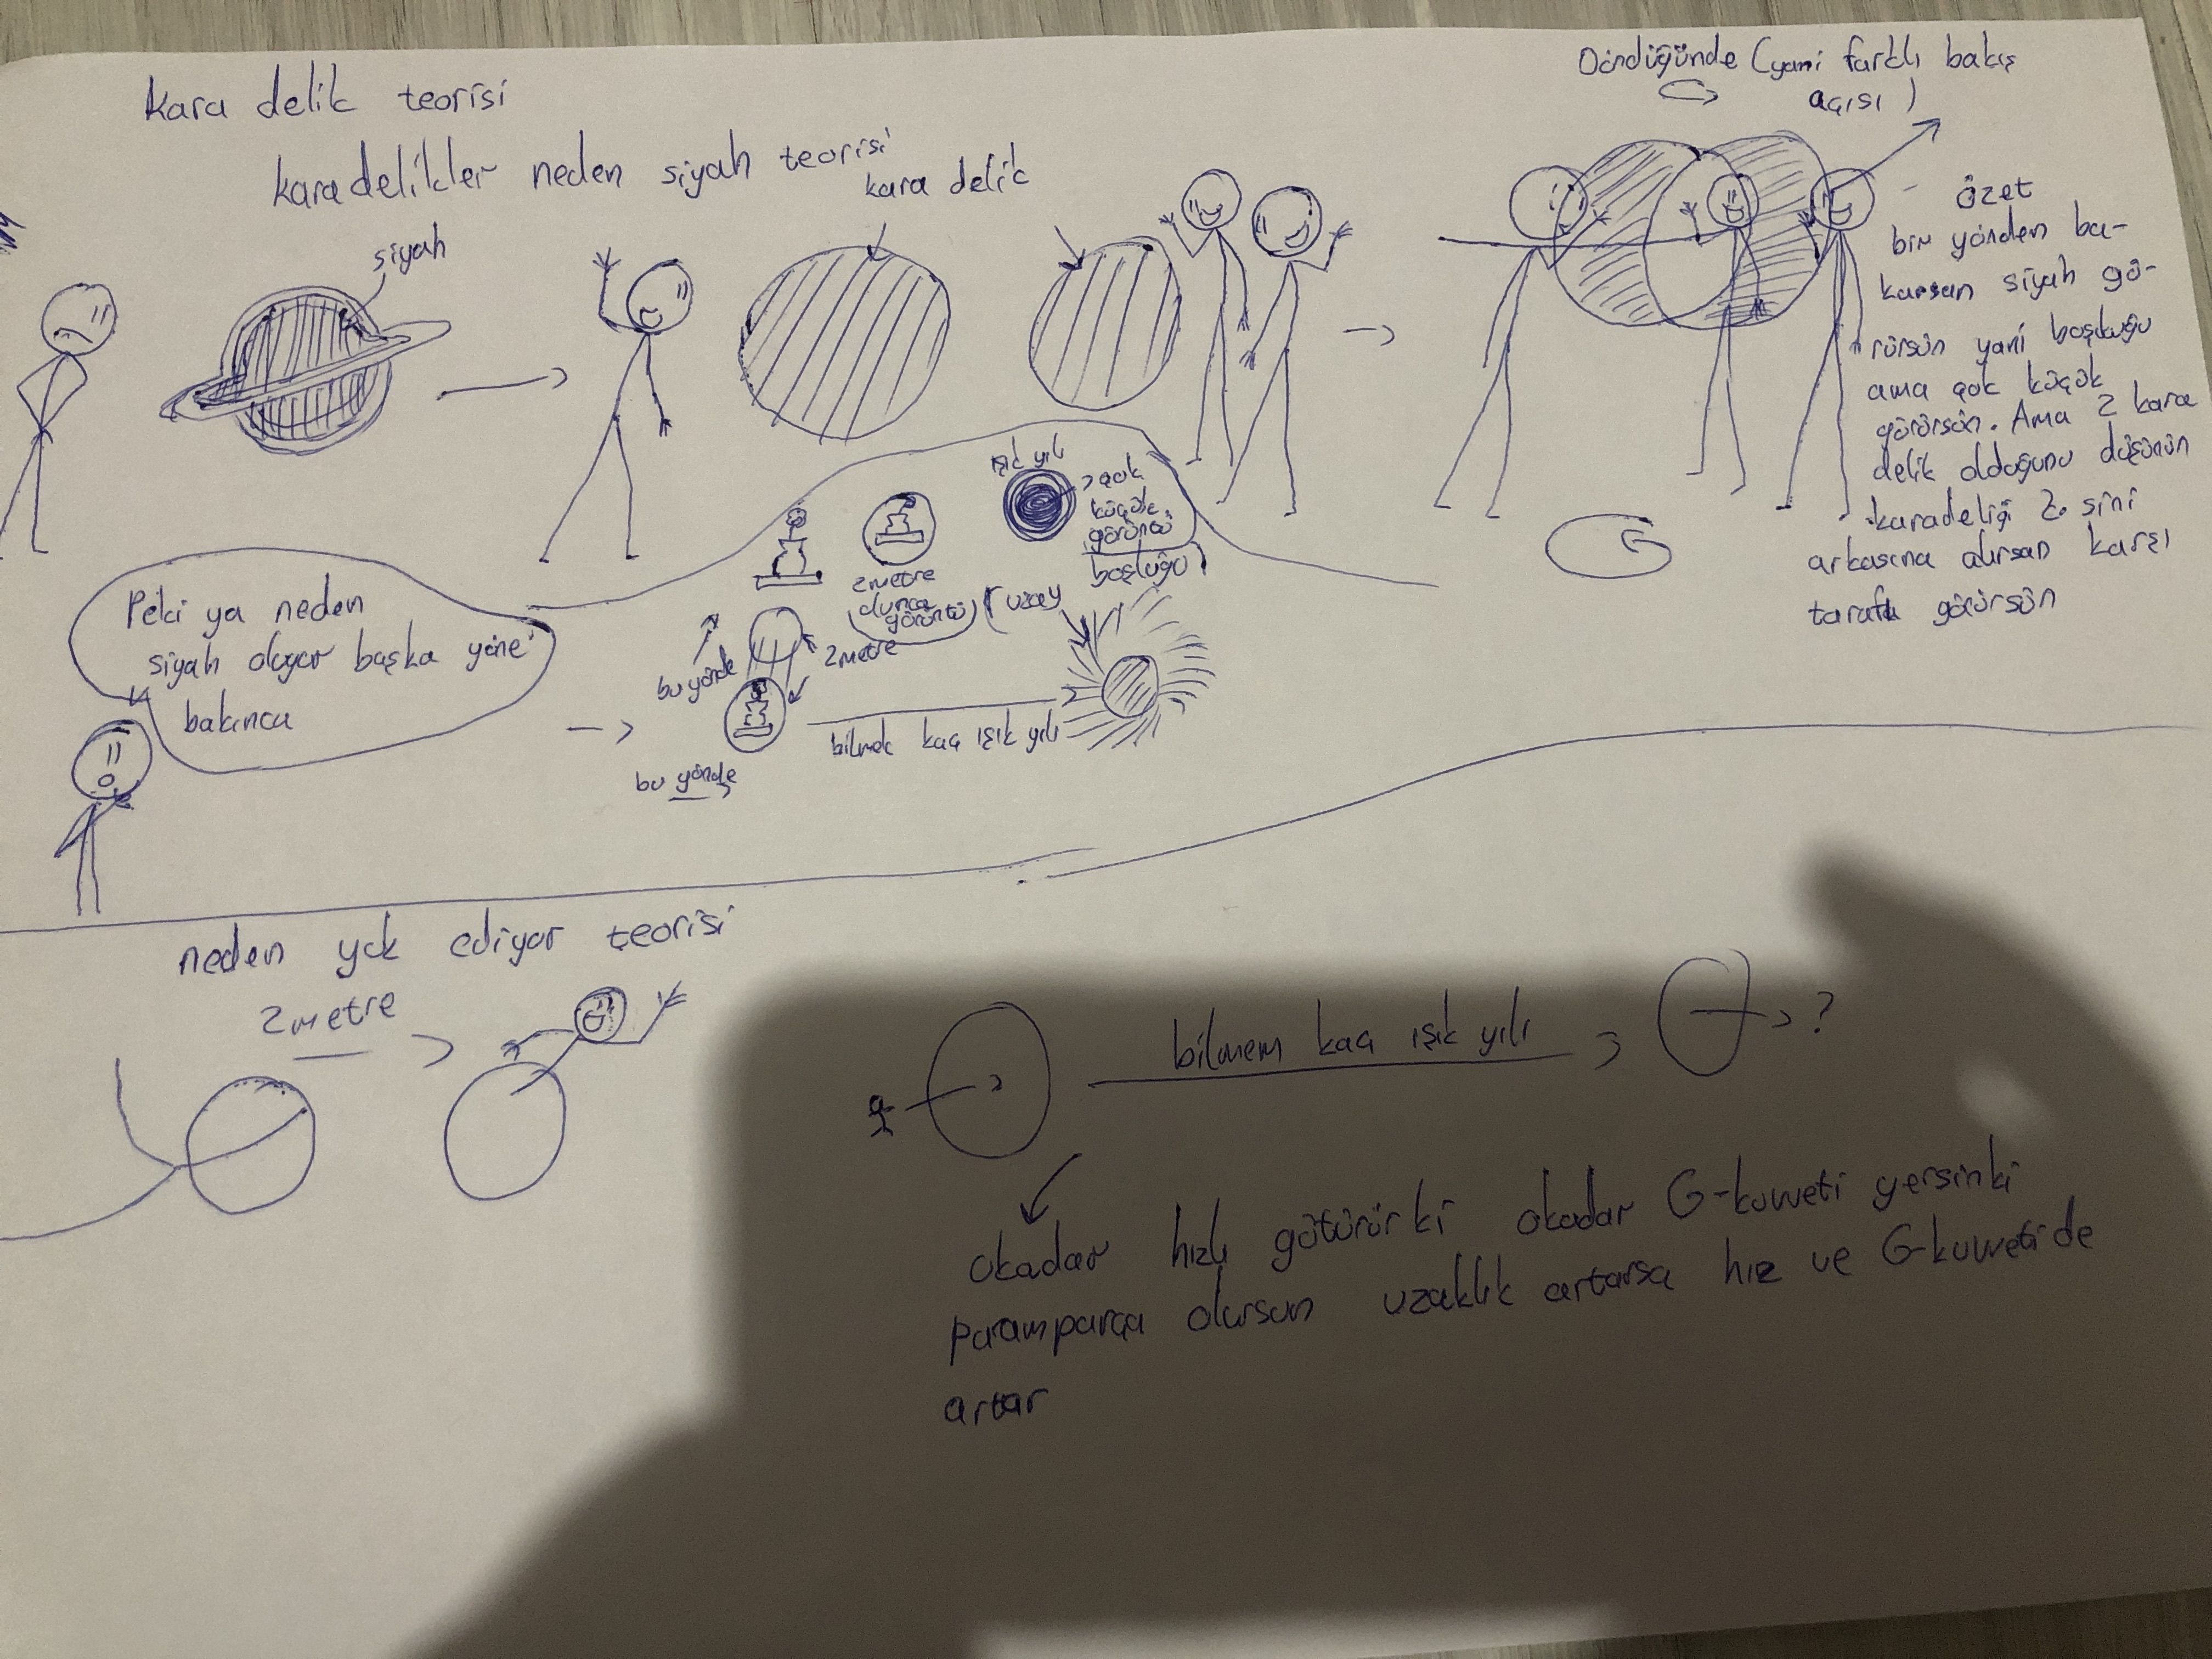 kara delik teorisi
karadelikler neden siyah teorisi
siyah
kara delik
Döndüğünde (yani farklı bakış
açısı)
özet
bir yönden ba-
karsan siyah gö-
rürsün yani boşluğu
ama çok küçük
görürsün. Ama 2 kara
delik olduğunu düşünün
karadeliği 2. sini
arkasına alırsan karşı
tarafı görürsün
Peki ya neden
siyah oluyor başka yöne
bakınca
ışık yılı
çok
küçük
görüntü
boşluğu)
(uzay
2 metre
olunca
görüntü
2 metre
bu yönde
bu yönde
bilmek kaç ışık yılı
neden yok ediyor teorisi
2 metre
bilmem kaç ışık yılı
?
okadar hızlı götürürki okadar G-kuvveti yersinki
paramparça olursun uzaklık artarsa hız ve G-kuvvetide
artar